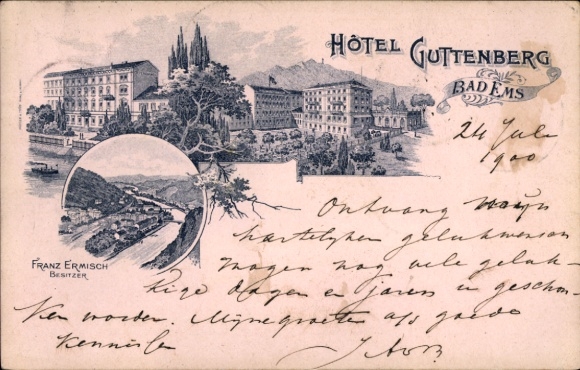 HÔTEL GUTTENBERG
BAD EMS
24 Juli
1900
Ontvang mijn
hartelijken gelukwensen
mogen nog vele geluk-
kige dagen en jaren u geschon-
ken worden. Mijne groeten als goede
kennis
FRANZ ERMISCH
BESITZER